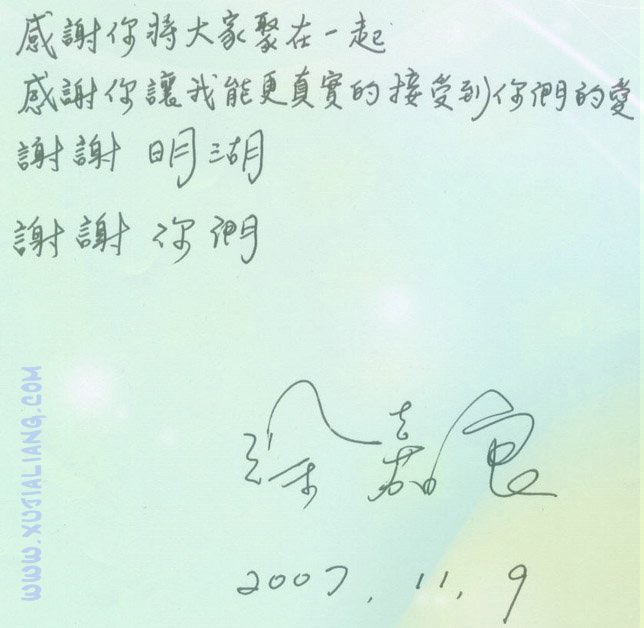 感謝你將大家聚在一起
感謝你讓我能更真實的接受到你們的愛
謝謝 明湖
謝謝 你們
徐嘉良
2007.11.9
WWW.XUJIALIANG.COM